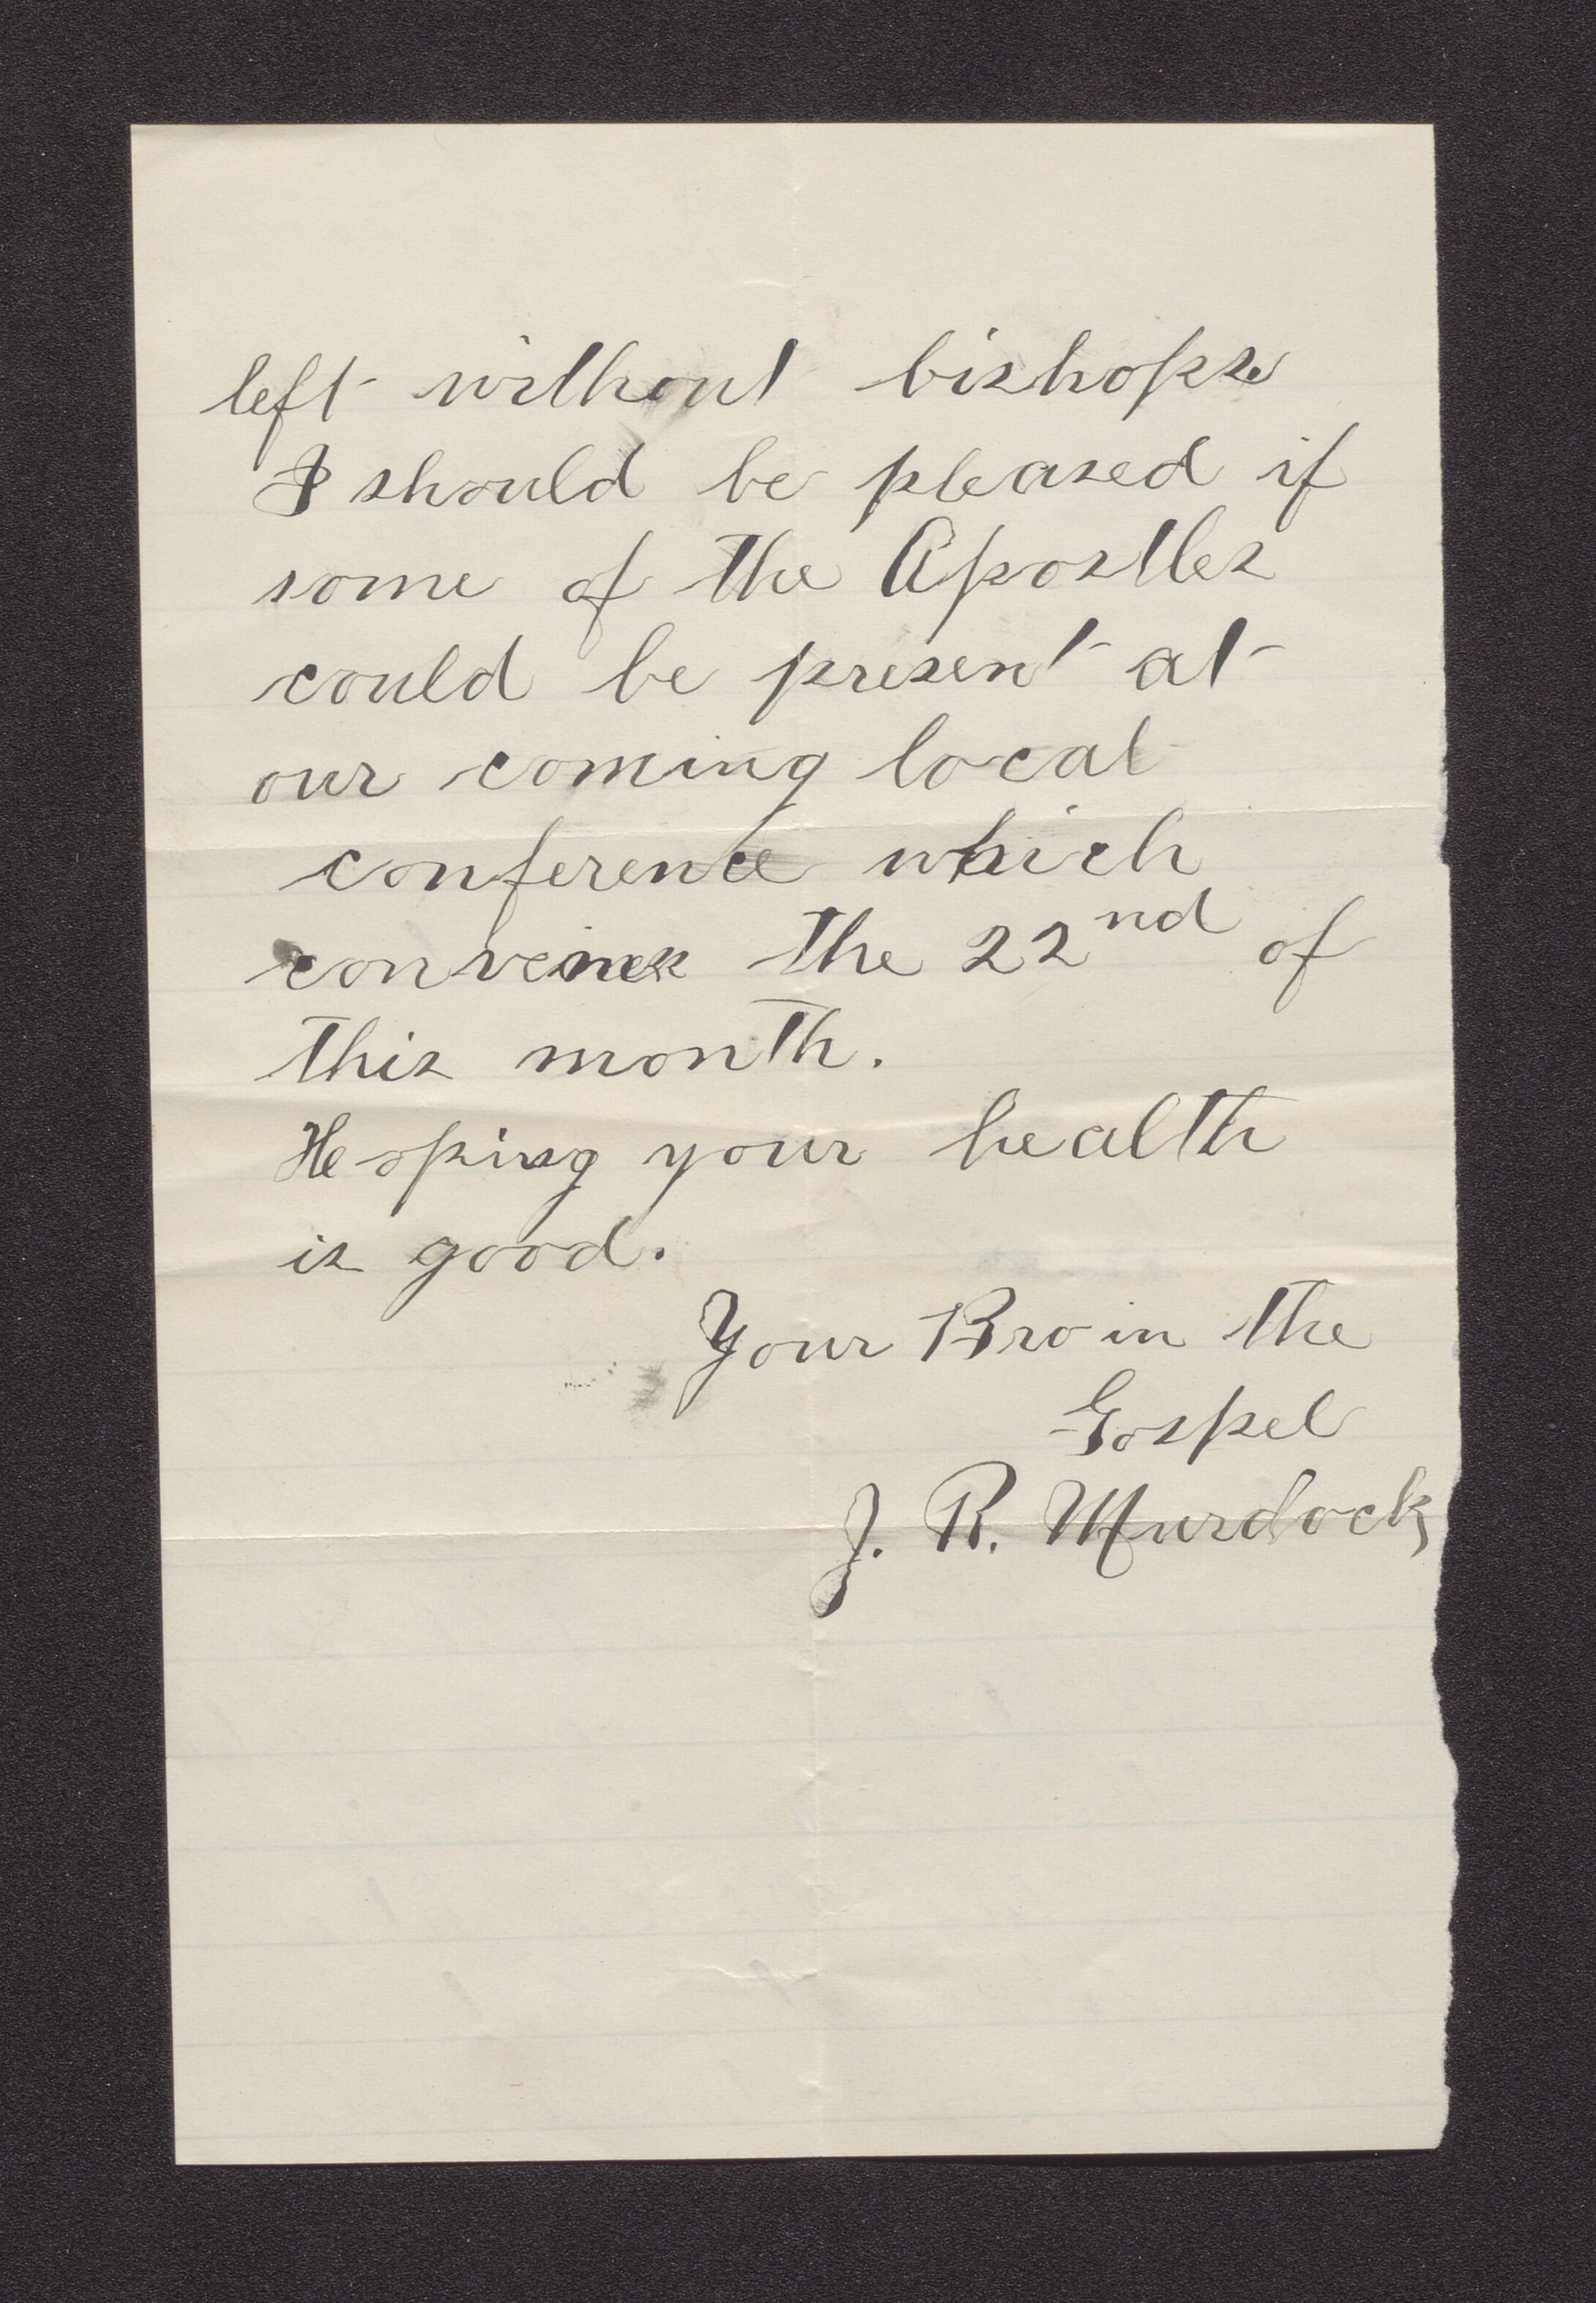 left without bishops
I should be pleased if
some of the Apostles
could be present at
our coming local
conference which
convenes the 22nd of
this month.
Hoping your health
is good.
Your Bro in the
Gospel
J. R. Murdock